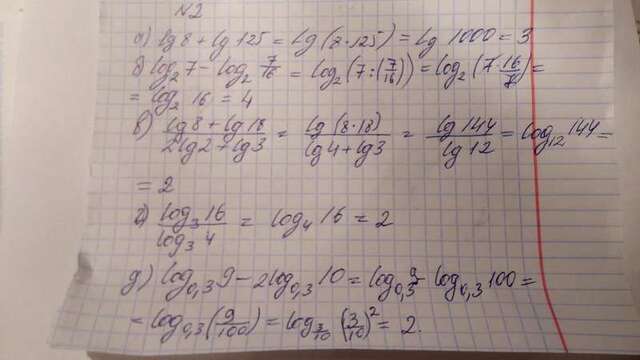 N2
а) lg 8 + lg 125 = lg (8·125) = lg 1000 = 3
б) log₂ 7 - log₂ 7/16 = log₂ (7 : (7/16)) = log₂ (7·16/7) =
= log₂ 16 = 4
в) (lg 8 + lg 18)/(2 lg 2 + lg 3) = lg (8·18)/(lg 4 + lg 3) = lg 144/lg 12 = log₁₂ 144 =
= 2
г) log₃ 16/log₃ 4 = log₄ 16 = 2
д) log₀,₃ 9 - 2 log₀,₃ 10 = log₀,₃ 9 - log₀,₃ 100 =
= log₀,₃ (9/100) = log_{3/10} (3/10)² = 2.